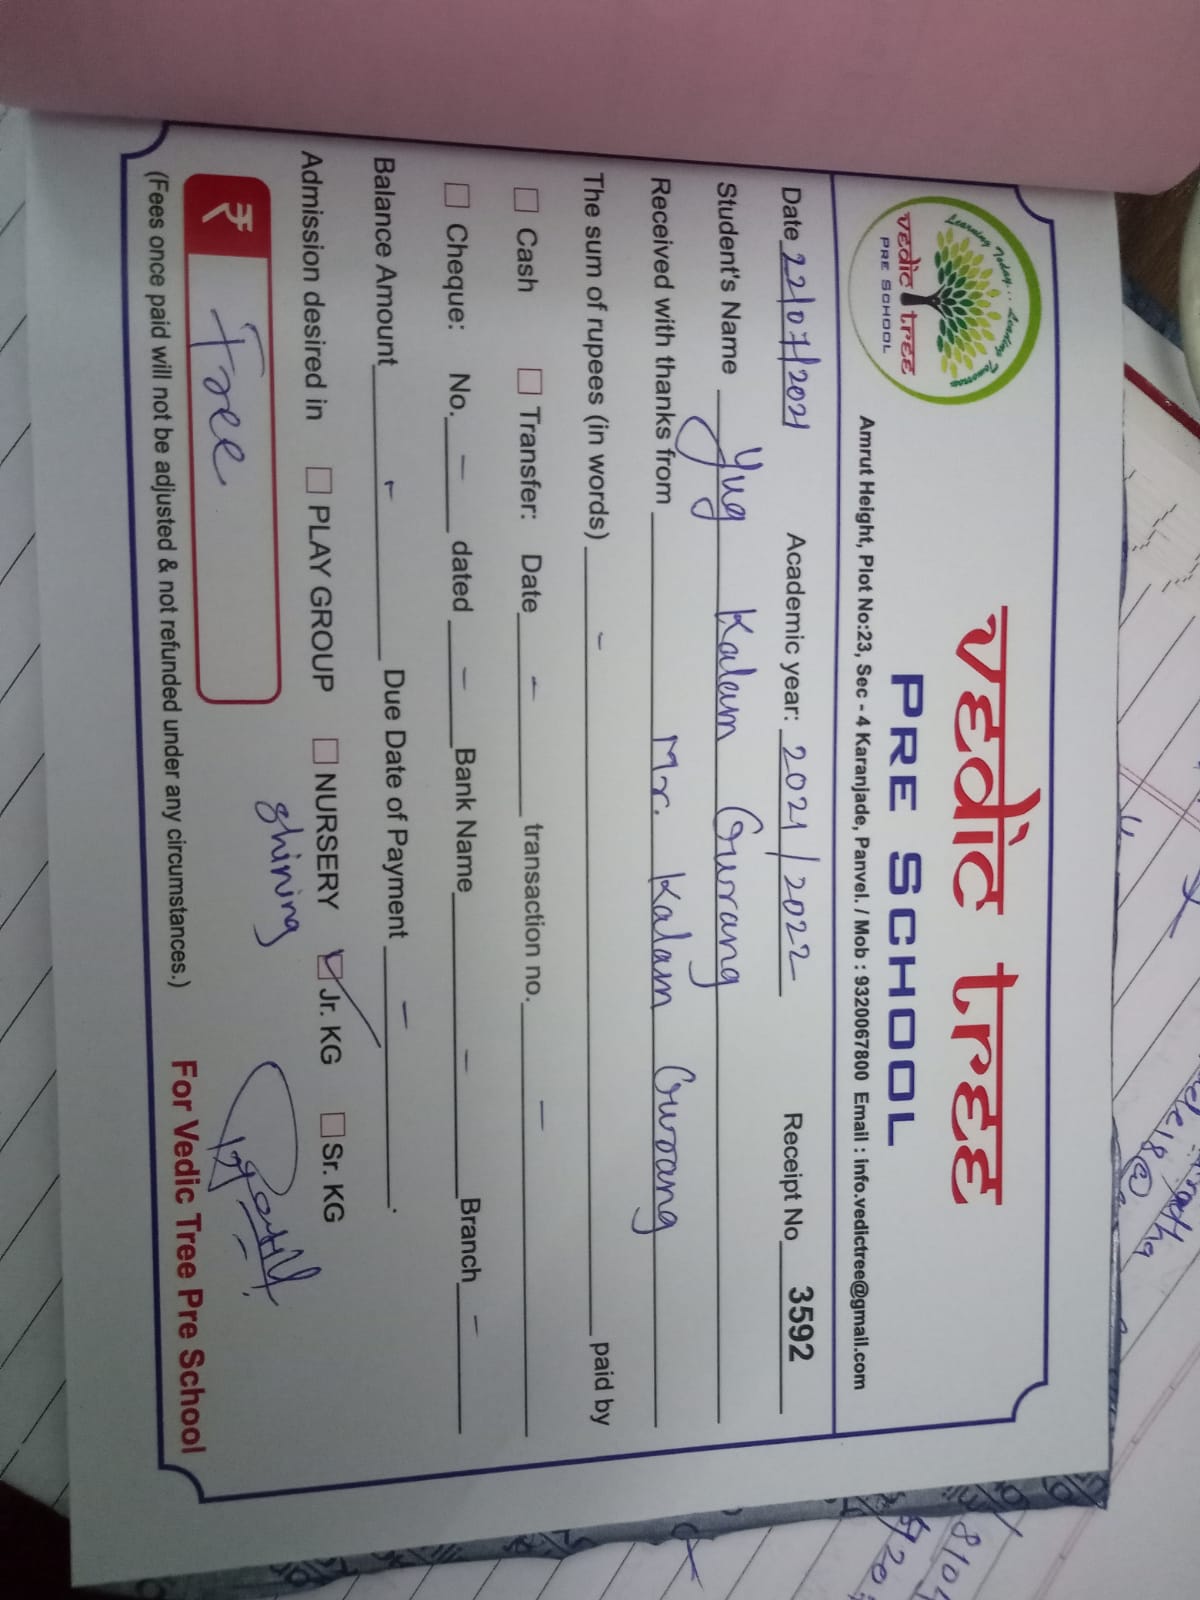 Learning Today... Leading Tomorrow
vedic tree
PRE SCHOOL
vedic tree
PRE SCHOOL
Amrut Height, Plot No:23, Sec - 4 Karanjade, Panvel. / Mob : 9320067800 Email : info.vedictree@gmail.com
Date 22/07/2021 Academic year: 2021/2022 Receipt No 3592
Student's Name Yug Kalam Gurang
Received with thanks from Mr. Kalam Gurang
The sum of rupees (in words) - paid by
Cash Transfer: Date - transaction no. -
Cheque: No. - dated - Bank Name - Branch -
Balance Amount - Due Date of Payment - .
Admission desired in PLAY GROUP NURSERY Jr. KG Sr. KG
shining
₹ Free
(Fees once paid will not be adjusted & not refunded under any circumstances.) For Vedic Tree Pre School